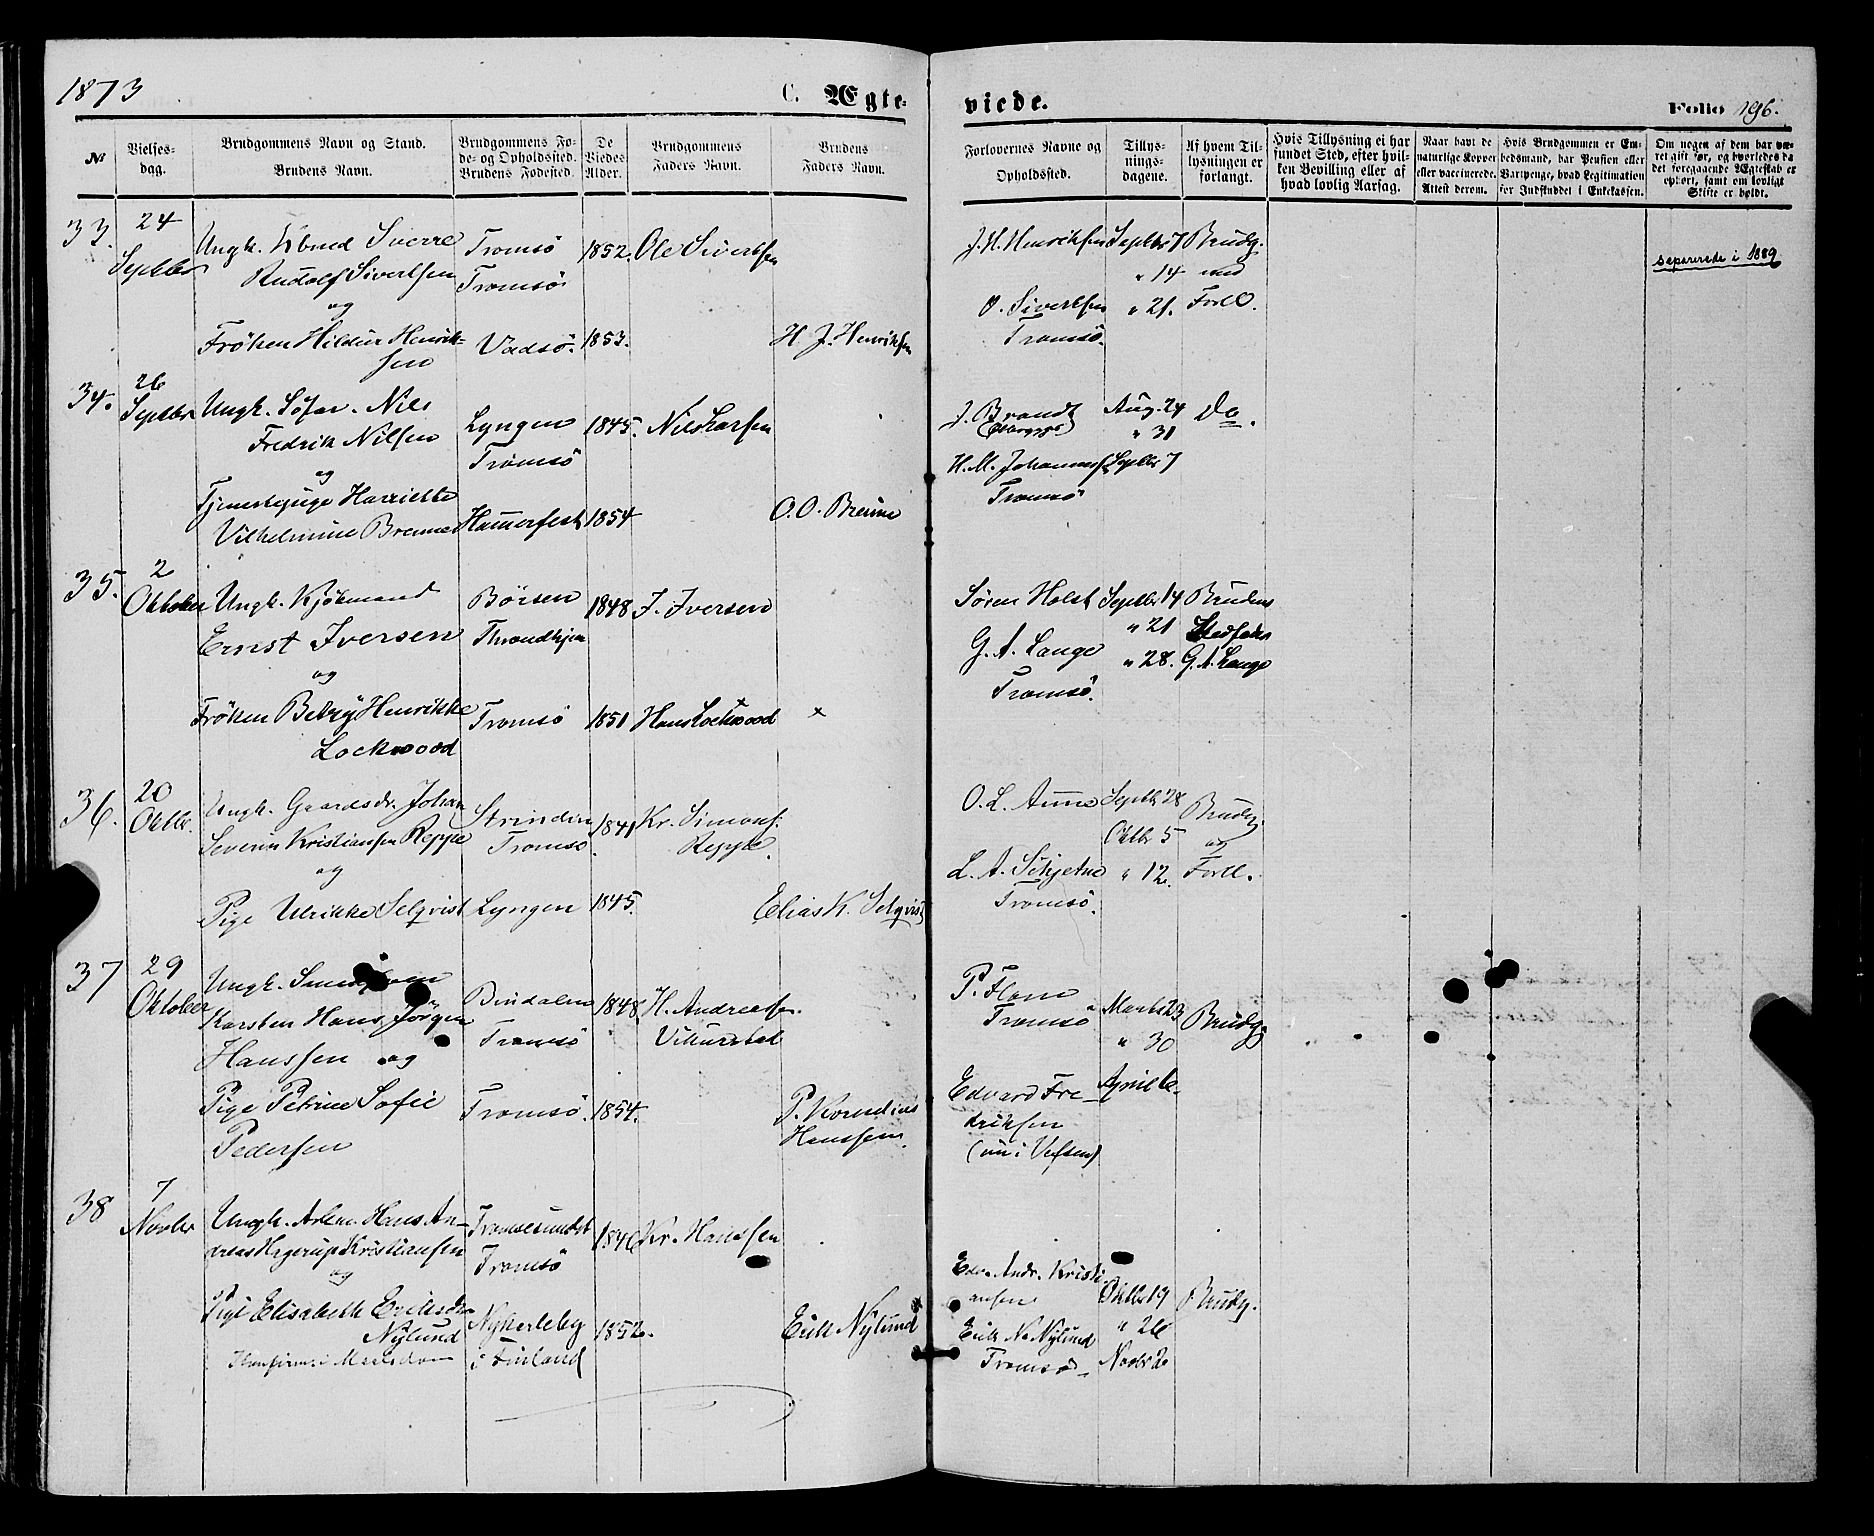 1873
C. Ægte-
viede.
Folio 196.
№
Vielses-
dag.
Brudgommens Navn og Stand.
Brudens Navn.
Brudgommens Fø-
de- og Opholdssted.
Brudens Fødested.
De
Viedes
Alder.
Brudgommens
Faders Navn.
Brudens
Faders Navn.
Forlovernes Navne og
Opholdssted.
Tillys-
nings-
dagene.
Af hvem Til-
lysningen er
forlangt.
Hvis Tillysning ei har
fundet Sted, efter hvil-
ken Bevilling eller af
hvad lovlig Aarsag.
Naar havt de
naturlige Kopper
eller vaccinerede.
Attest derom.
Hvis Brudgommen er Em-
bedsmand, har Pension eller
Vartpenge, hvad Legitimation
for Indskuddet i Enkekassen.
Om nogen af dem har væ-
ret gift før, og hvorledes da
det foregaaende Ægteskab er
ophørt, samt om lovligt
Skifte er holdt.
33.
24
Septbr
Ungk. Kbmd Sverre
Rudolf Sivertsen
og
Fröken Hildur Henrik-
sen
Tromsö
Tromsö
Vadsö.
1852.
1853.
Ole Sivertsen
H. J. Henriksen
J. H. Henriksen
O. Sivertsen
Tromsö.
Septbr 7
" 14
" 21.
Brudg.
med
Forlo.
separerede i 1889
34.
26
Septbr
Ungk. Nils
Fredrik Nilsen
og
Tjenestepige Harriette
Vilhelmine Breune
Lyngen
Tromsö
Hammerfest
1845.
1854
Nils Larsen
O. O. Breune
J. Brandt
H. M. Johannes
Tromsö
Aug. 24
" 31
Septbr 7
Do.
35.
2
Oktober
Ungk. Kjöbmand
Ernst Iversen
og
Fröken Betzy Henrikke
Lockwood
Börsen
Throndhjem
Tromsö
1848
1851
J. Iversen
Hans Lockwood
×
Sören Holst
G. A. Lange
Tromsö.
Septbr 14
" 21
" 28.
Brudens
Stedfader
G. A. Lange
36.
20
Oktbr.
Ungk. Gaardsdr. Johan
Severin Kristiansen Reppe
og
Pige Ulrikke Selqvist
Strinden
Tromsö.
Lyngen
1841
1845.
Kr. Simons.
Reppe.
Elias K. Selqvist
O. L. Aune
L. A. Schjetne
Tromsö.
Septbr 28
Oktbr 5
" 12.
Brudg.
og
Forl.
37
29
Oktober
Ungk.
Karsten Hans Jörgen
Hanssen og
Pige Petrine Sofie
Pedersen
Bindalen
Tromsö
Tromsö.
1848
1854.
H. Andreasen.
P. Kornelius
Hanssen.
P. Flom
Tromsö
Edvard Fre-
driksen
(nu i Vefsen)
Marts 23
" 30
April 6.
Brudg.
38
7
Novbr
Ungk. Arb. Hans An-
dreas Hagerup Kristiansen
og
Pige Elisabeth Eriksdr
Nylund
Konfirm. i Maalsdalen
Tromsösundet
Tromsö
Nykarleby
i Finland
1846
1852.
Kr. Hanssen
Erik Nylund
Edv. Andr. Kristi-
ansen
Erik N. Nylund
Tromsö
Oktbr 19
" 26
Novbr 2
Brudg.